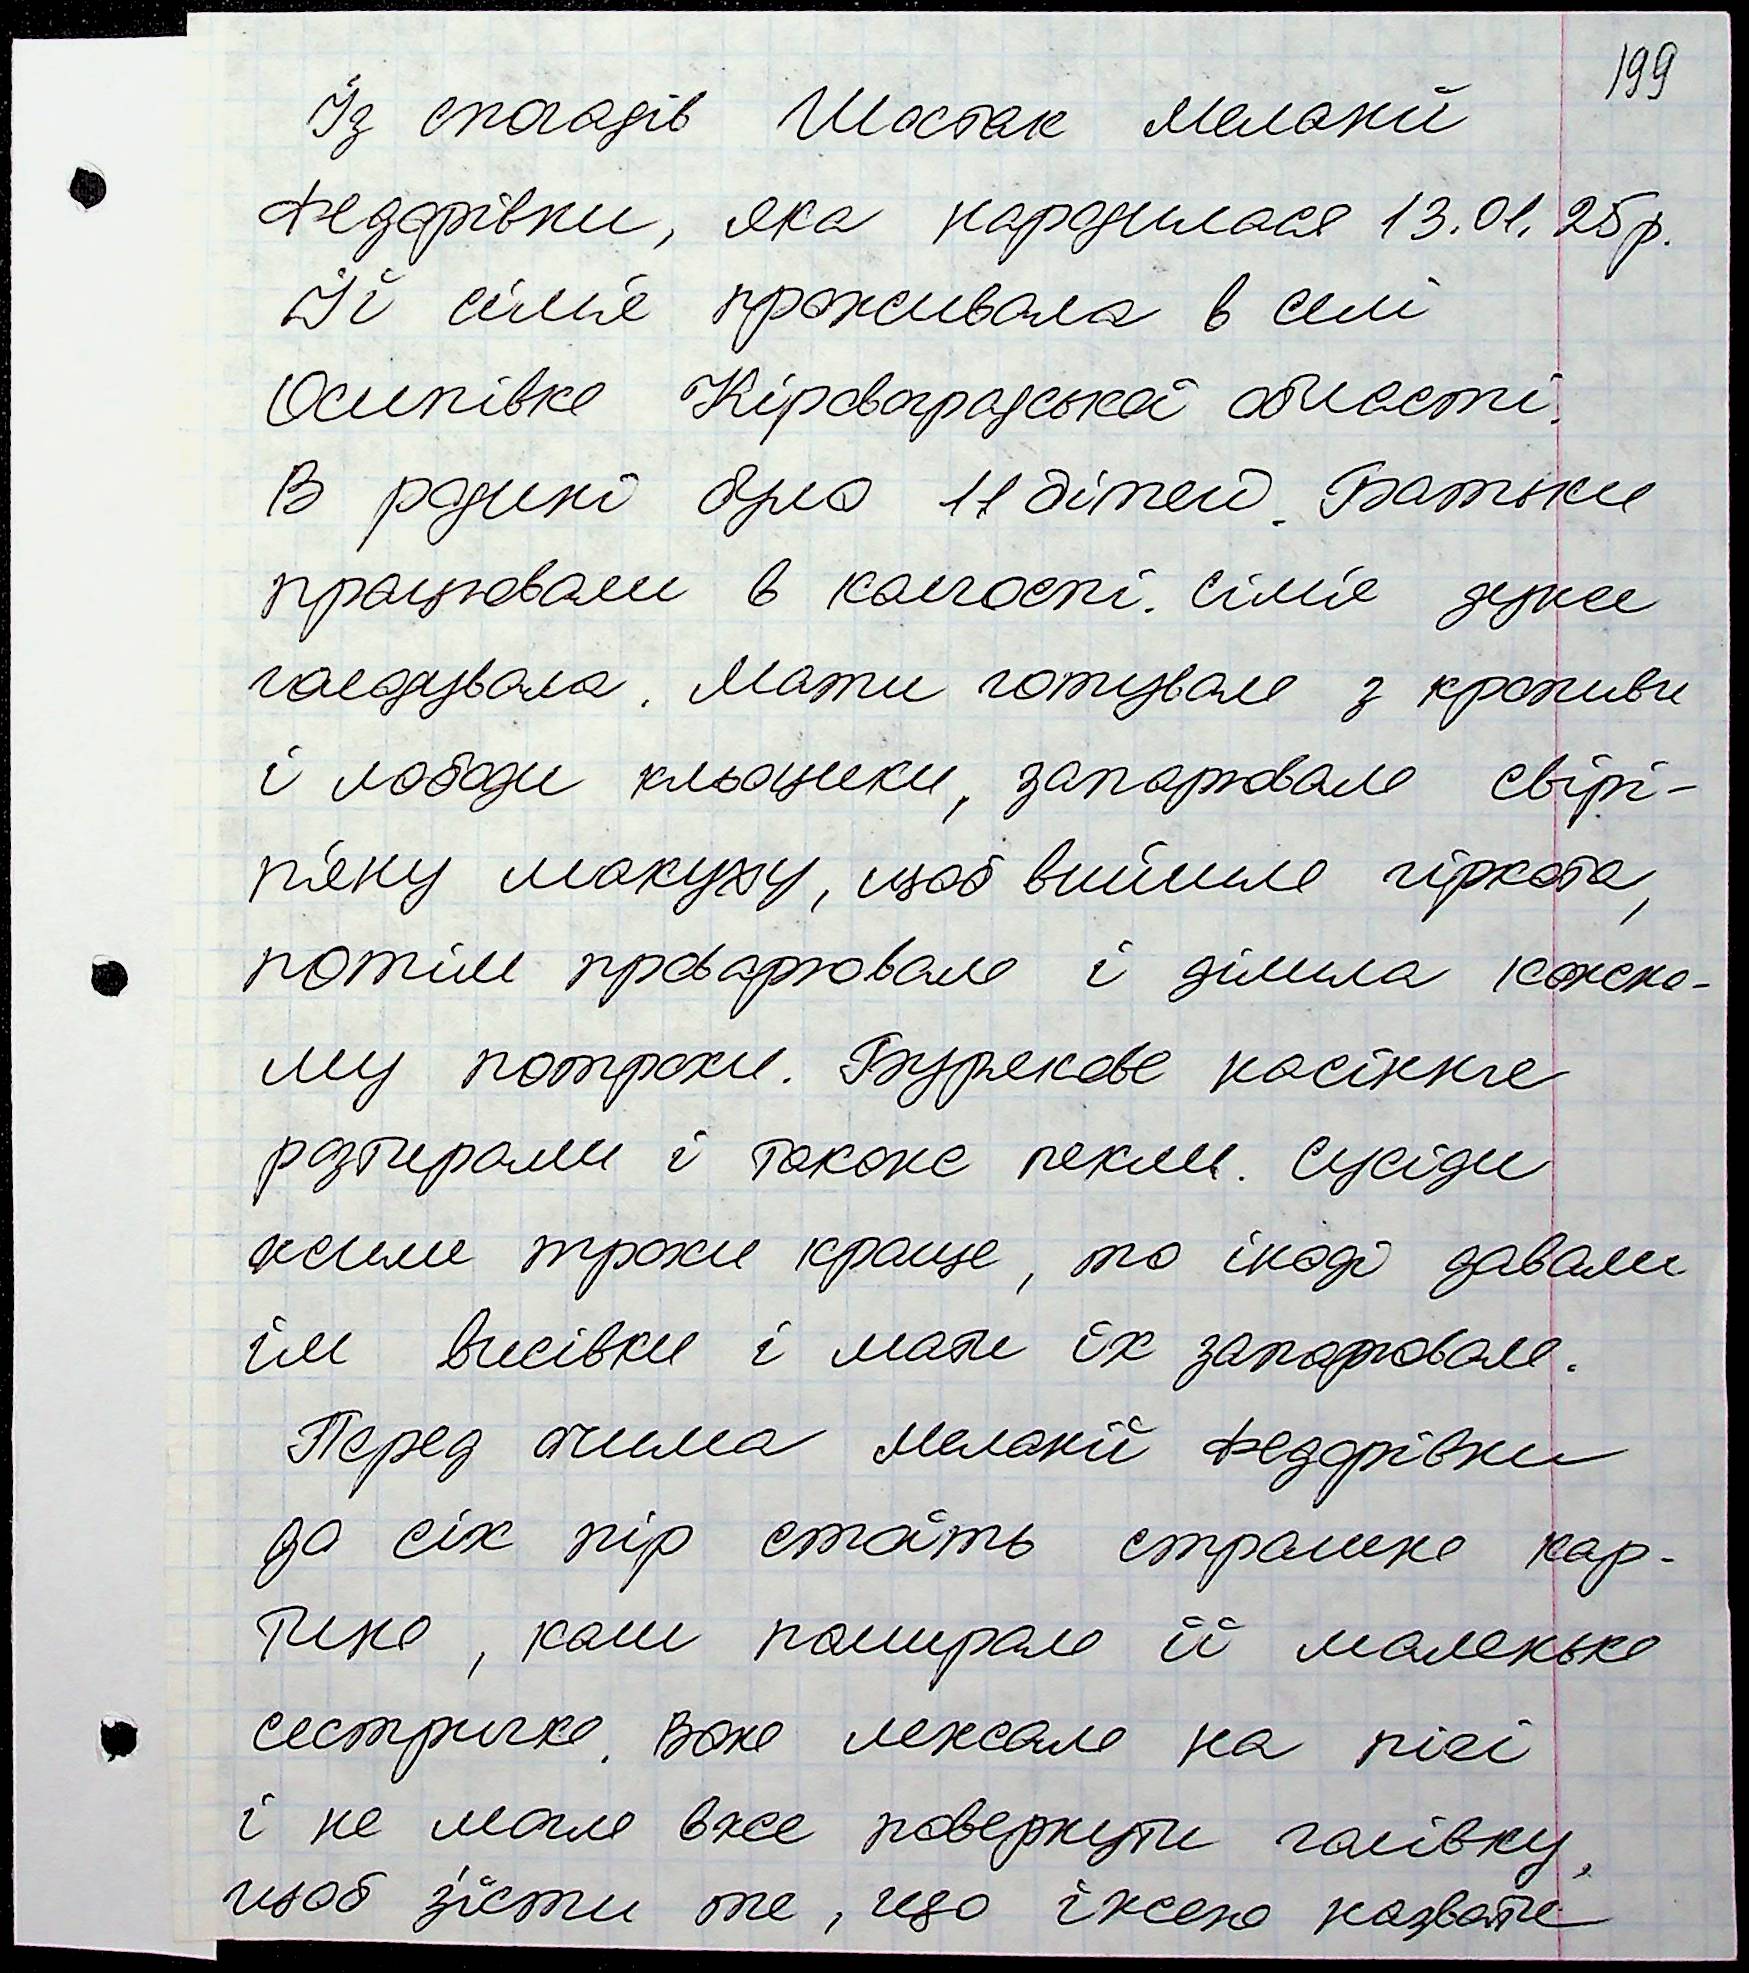 199
Із спогадів Шостак Меланії
Федорівни, яка народилася 13.01.25р.
Її сім'я проживала в селі
Осипівка Кіровоградської області.
В родині було 11 дітей. Батьки
працювали в колгоспі. Сім'я дуже
голодувала. Мати готувала з кропиви
і лободи кльоцики, запарювала свірі-
п'яну макуху, щоб вийшла гіркота,
потім проварювала і ділила кожно-
му потрохи. Бурякове насіння
розтирали і також пекли. Сусіди
жили трохи краще, то іноді давали
їм висівки і мати їх запарювала.
Перед очима Меланії Федорівни
до сіх пір стоїть страшна кар-
тина, коли помирала її маленька
сестричка. Вона лежала на пічі
і не могла вже повернути голівку,
щоб з'їсти те, що їжею назвати